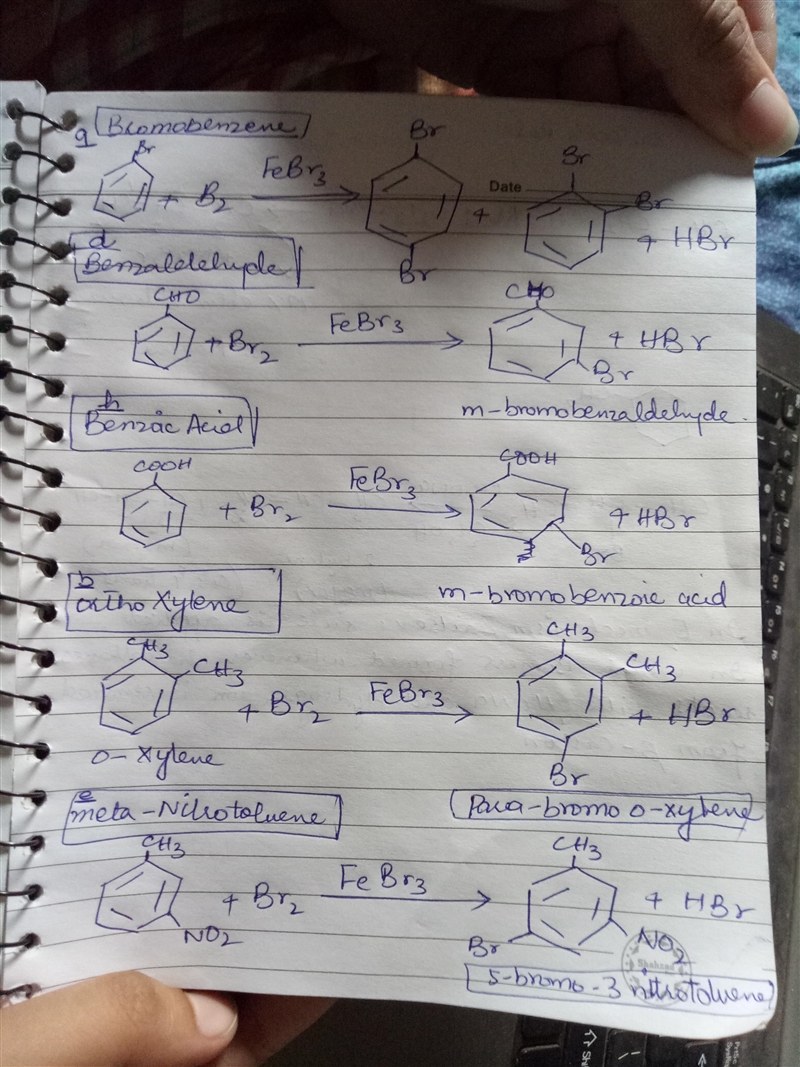 g Bromobenzene
Br
+ B2 FeBr3
Br
Br
Date
+
Br
Br
+ HBr
d
Benzaldehyde
CHO
+ Br2 FeBr3
CHO
Br
+ HBr
m-bromobenzaldehyde.
h
Benzoic Acid
COOH
+ Br2 FeBr3
COOH
Br
+ HBr
m-bromobenzoic acid
b
ortho Xylene
CH3
CH3
+ Br2 FeBr3
CH3
CH3
Br
+ HBr
o-Xylene
Para-bromo o-xylene
e
meta-Nitrotoluene
CH3
NO2
+ Br2 FeBr3
CH3
Br
NO2
+ HBr
5-bromo-3 nitrotoluene